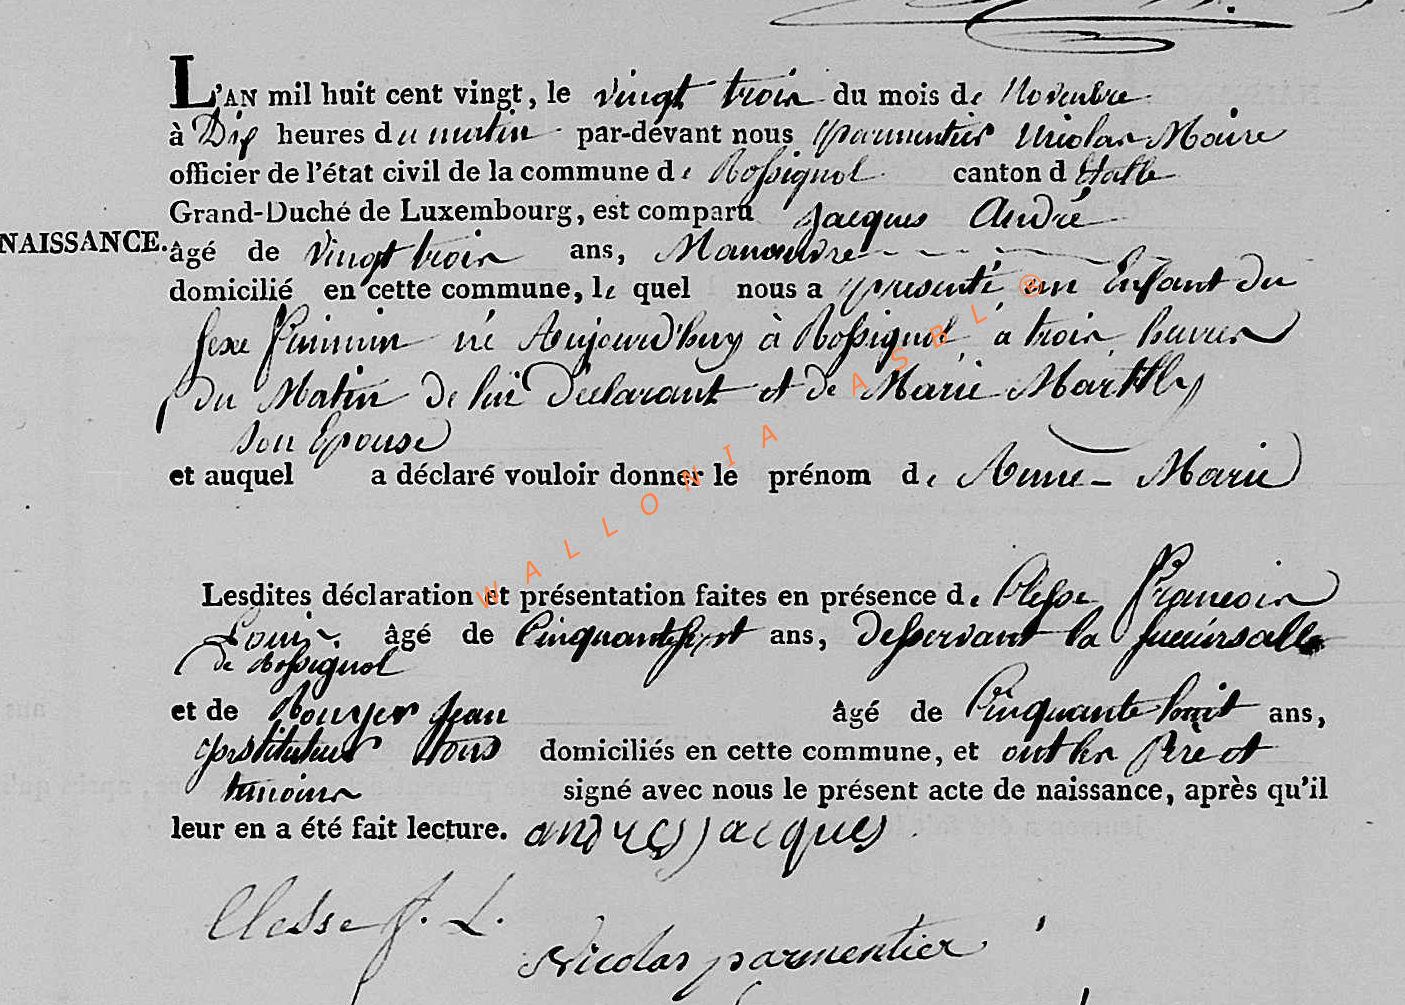 L'AN mil huit cent vingt, le vingt trois du mois de Novembre
à Dix heures du matin par-devant nous parmentier Nicolas Maire
officier de l'état civil de la commune de Rossignol canton d'Etalle
Grand-Duché de Luxembourg, est comparu Jacques André
NAISSANCE. âgé de Vingt trois ans, Manouvre
domicilié en cette commune, le quel nous a présenté un Enfant du
sexe feminin né Aujourd'huy à Rossignol à trois heures
du Matin de lui Déclarant et de Marie Marthly
son Epouse
et auquel a déclaré vouloir donner le prénom de Anne-Marie
Lesdites déclaration et présentation faites en présence de Clesse François
Louis âgé de Cinquante sept ans, desservant la succursalle
de Rossignol
et de Rouyer Jean âgé de Cinquante huit ans,
jnstituteur tous domiciliés en cette commune, et ont les père et
témoins signé avec nous le présent acte de naissance, après qu'il
leur en a été fait lecture. andres jacques
Clesse f. L.
Nicolas parmentier
WALLONIA ASBL ®